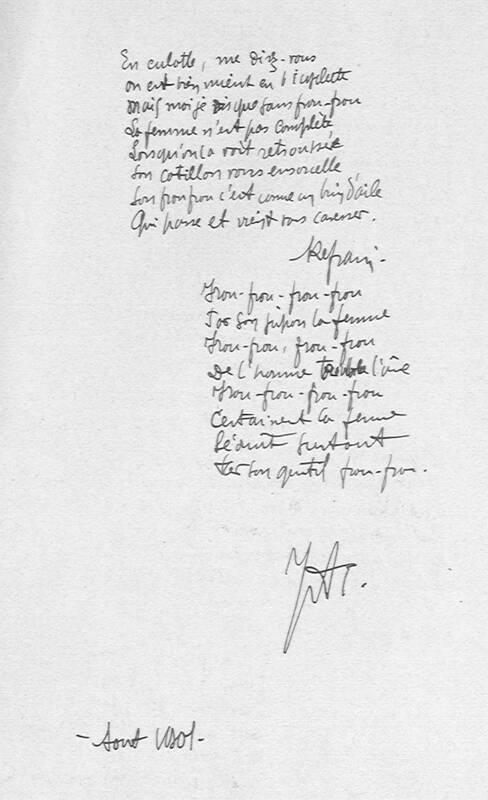 En culotte, me diez-vous
on est bien mieux en bicyclette
Mais moi je dis que sans frou-frou
La femme n'est pas complète
Lorsqu'on la voit retroussée
Son cotillon vous ensorcelle
Son froufrou c'est comme un bruit d'aile
Qui passe et vient vous caresser.
Refrain-
Frou-frou-frou-frou
Par son jupon la femme
Frou-frou, frou-frou
De l'homme trouble l'âme
Frou-frou-frou-frou
Certainement la femme
Séduit surtout
Par son gentil frou-frou.
-Aout